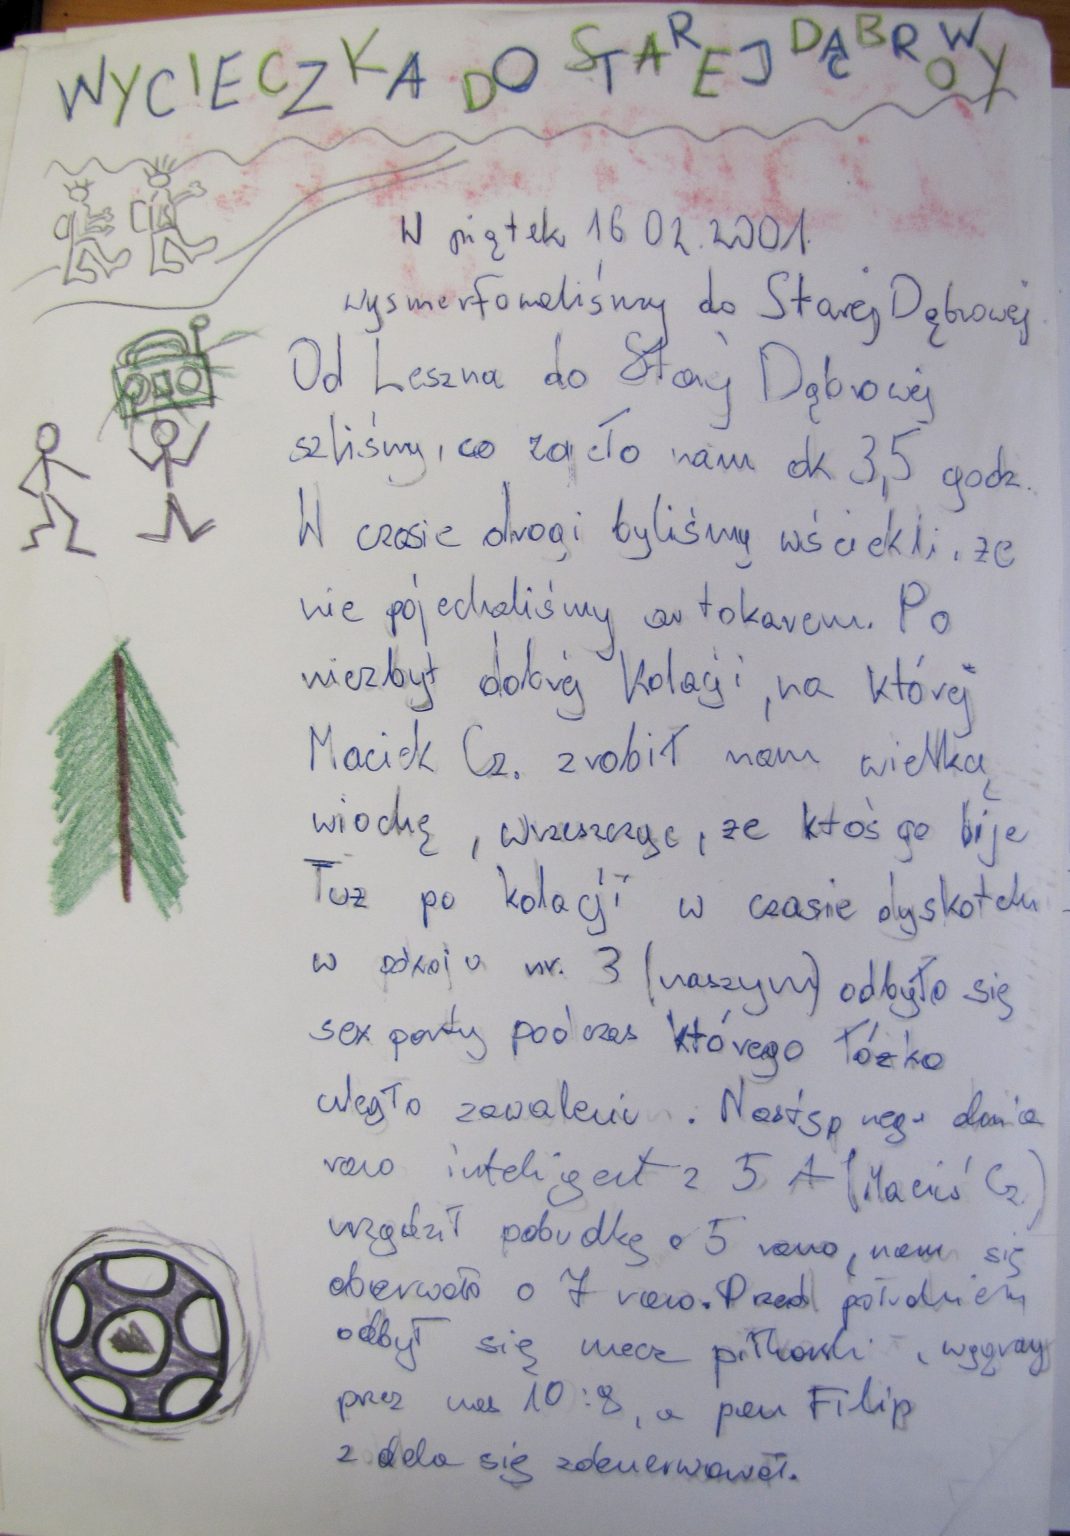 WYCIECZKA DO STAREJ DĄBROWY
W piątek 16 02.2001.
wysmerfowaliśmy do Starej Dąbrowej
Od Leszna do Starej Dąbrowej
szliśmy, co zajeło nam ok 3,5 godz.
W czasie drogi byliśmy wściekli, że
nie pojechaliśmy autokarem. Po
niezbyt dobrej kolacji, na której
Maciek Cz. zrobił nam wielką
wiochę, wrzeszcząc, że ktoś go bije
Tuż po kolacji w czasie dyskoteki
w pokoju nr. 3 (naszym) odbyło się
sex party podczas którego łóżko
uległo zawaleniu. Następnego dnia
rano inteligent z 5 A (Maciuś Cz)
urządził pobudkę o 5 rano, nam się
oberwało o 7 rano. Przed południem
odbył się mecz piłkarski, wygrany
przez nas 10:8, a pan Filip
z deka się zdenerwował.